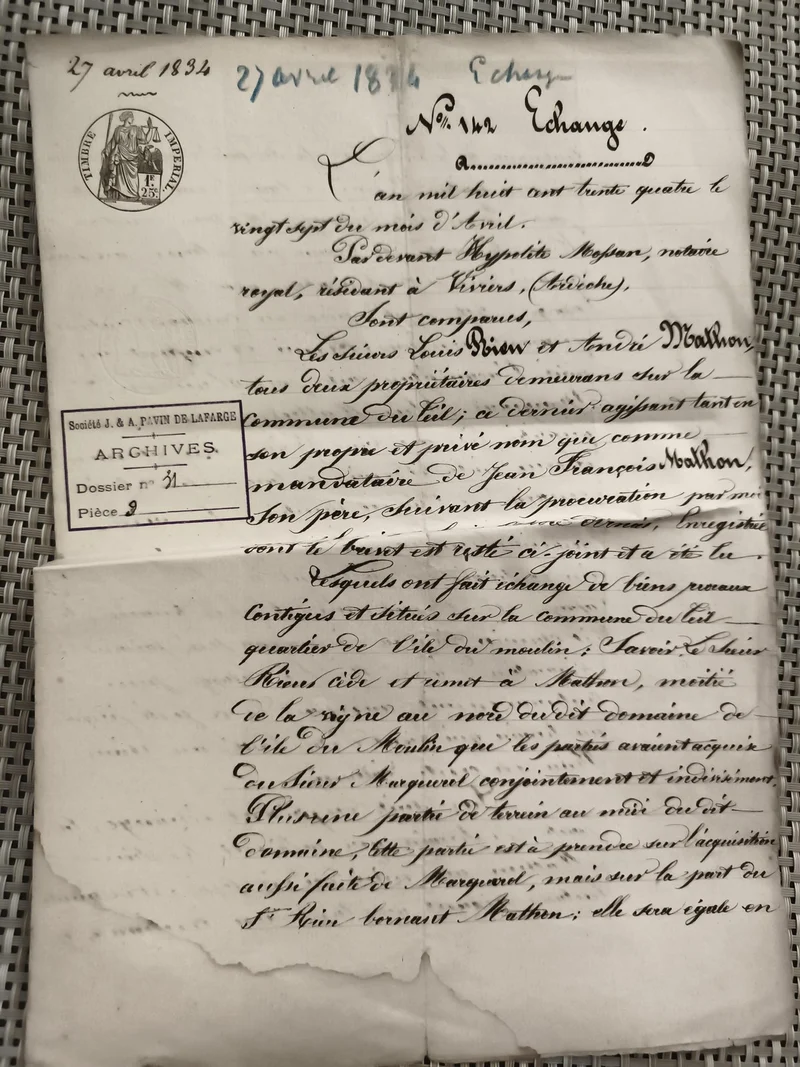 27 avril 1834
27 avril 1834 Echange
TIMBRE IMPERIAL
1F
25c
N° 142 Echange.
L'an mil huit cent trente quatre le
vingt sept du mois d'Avril.
Pardevant Hypolite Mossan, notaire
royal, résidant à Viviers, (Ardèche),
Sont comparus,
Les sieurs Louis Rieu et André Mathon,
tous deux propriétaires demeurans sur la
Commune du Teil; ce dernier agissant tant en
son propre et privé nom que comme
mandataire de Jean François Mathon,
Son père, suivant la procuration par moi
dernier, Enregistrée
dont le brevet est resté ci-joint et a été lu.
Lesquels ont fait échange de biens ruraux
Contigus et situés sur la commune du Teil
quartier de l'ile du moulin; Savoir: Le Sieur
Rieu cède et remet à Mathon, moitié
de la vigne au nord du dit domaine de
l'ile du Moulin que les parties avaient acquis
du Sieur Marquerol conjointement et indivisément,
Plus une partie de terrain au midi du dit
domaine, Cette partie est à prendre sur l'acquisition
aussi faite de Marquerol, mais sur la part du
Sr Rieu bornant Mathon; elle sera égale en
Société J. & A. PAVIN DE LAFARGE
ARCHIVES
Dossier n° 31
Pièce 9